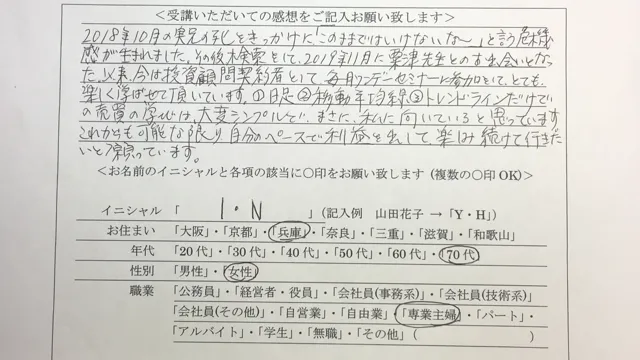 ＜受講いただいての感想をご記入お願い致します＞
2018年10月の実兄の死をきっかけに「このままではいけないな〜」と言う危機
感が生まれました。その後検索をして、2019年11月に粟津先生との出会いとなっ
た。以来、今は投資顧問契約者として、毎月ワンデーセミナーに参加をして、とても
楽しく学ばせて頂いています。①日足②移動平均線③トレンドラインだけで
の売買の学びは、大変シンプルで、まさに、私に向いていると思っています
これからも可能な限り自分のペースで利益を出して、楽しみ続けて行きた
いと願っています。
＜お名前のイニシャルと各項の該当に〇印をお願い致します (複数の〇印OK)＞
イニシャル 「 I・N 」(記入例 山田花子 →「Y・H」)
お住まい 「大阪」・「京都」・「兵庫」・「奈良」・「三重」・「滋賀」・「和歌山」
年代 「20代」・「30代」・「40代」・「50代」・「60代」・「70代」
性別 「男性」・「女性」
職業 「公務員」・「経営者・役員」・「会社員(事務系)」・「会社員(技術系)」
「会社員(その他)」・「自営業」・「自由業」・「専業主婦」・「パート」・
「アルバイト」・「学生」・「無職」・「その他」( )